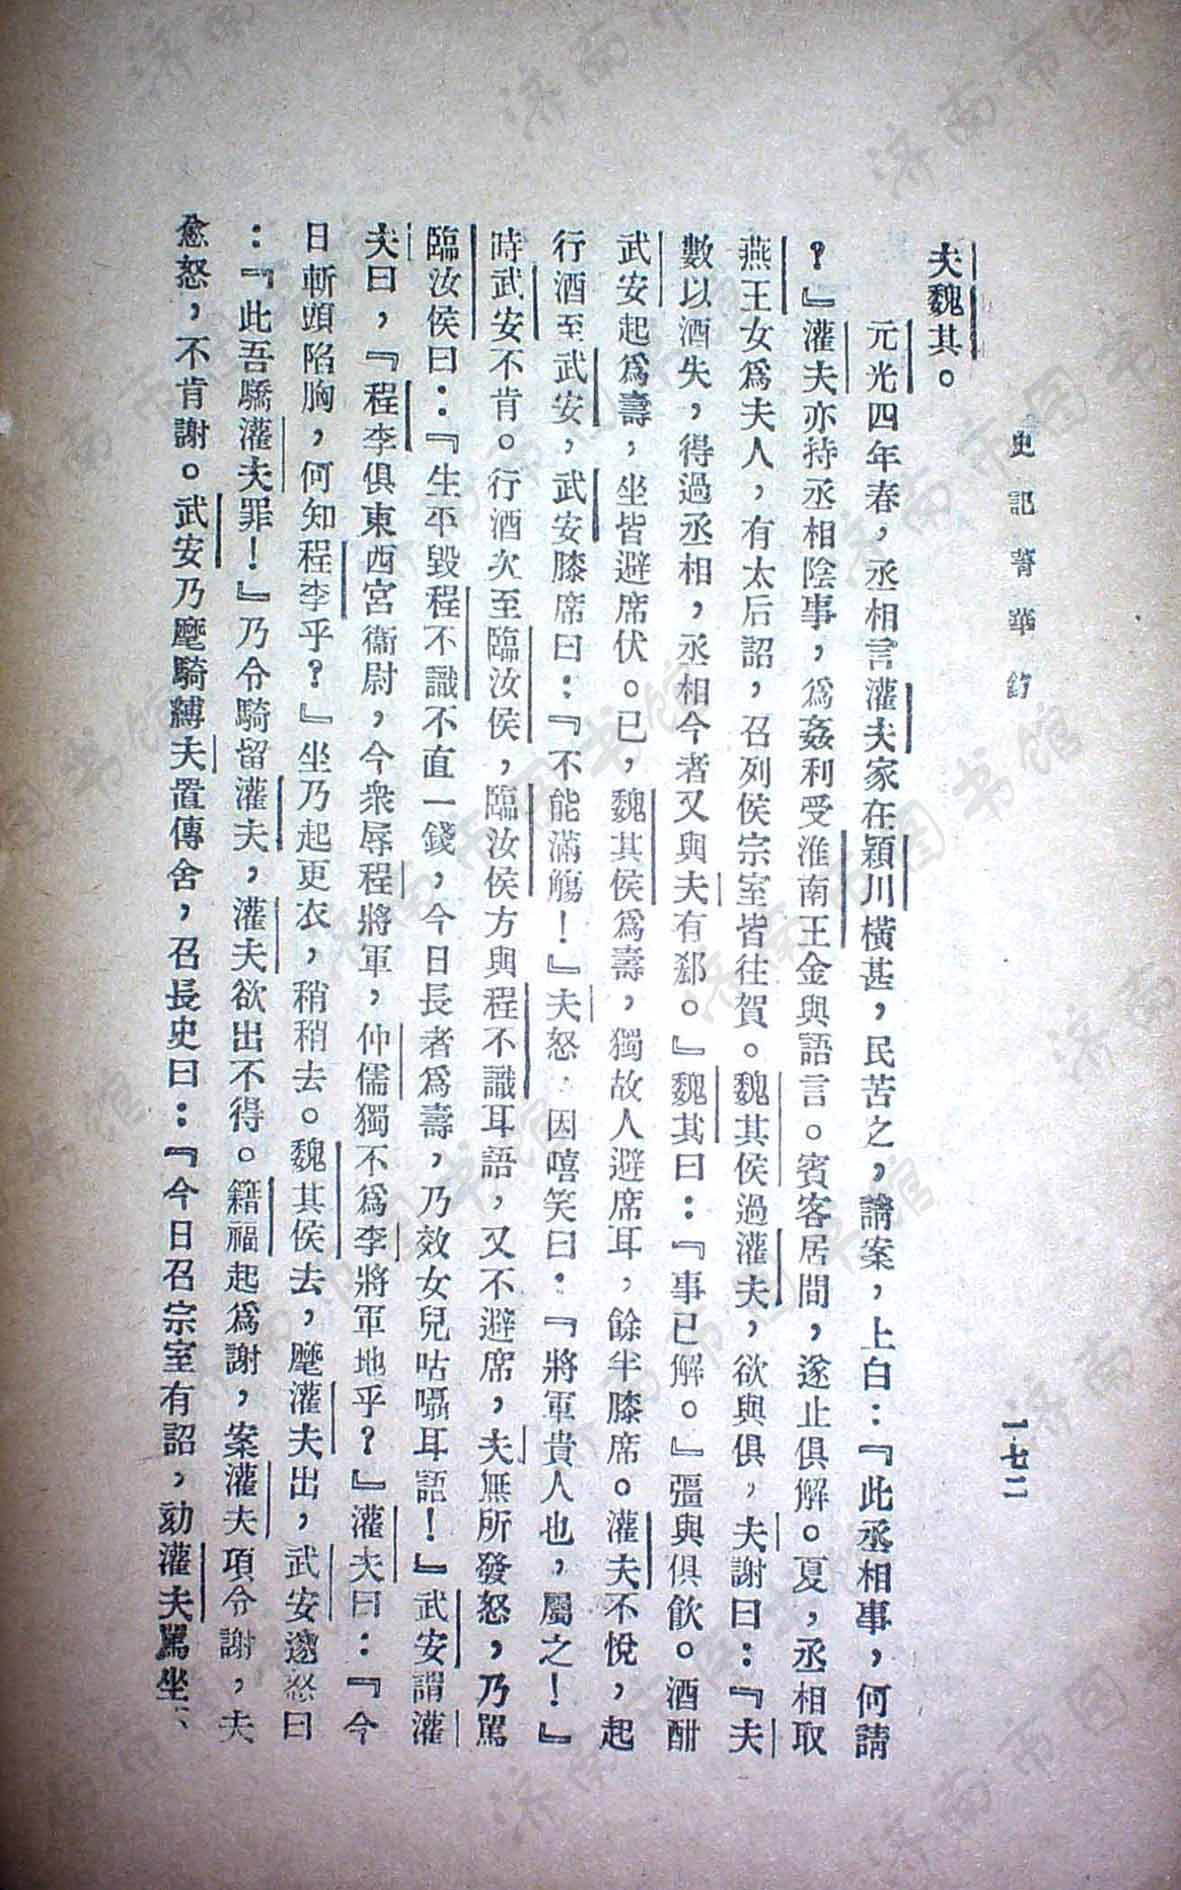 史記菁華錄
一七二
夫魏其。
元光四年春，丞相言灌夫家在潁川橫甚，民苦之，請案，上曰：『此丞相事，何請
？』灌夫亦持丞相陰事，爲姦利受淮南王金與語言。賓客居間，遂止俱解。夏，丞相取
燕王女爲夫人，有太后詔，召列侯宗室皆往賀。魏其侯過灌夫，欲與俱，夫謝曰：『夫
數以酒失，得過丞相，丞相今者又與夫有郄。』魏其曰：『事已解。』彊與俱飮。酒酣
武安起爲壽，坐皆避席伏。已，魏其侯爲壽，獨故人避席耳，餘半膝席。灌夫不悅，起
行酒至武安，武安膝席曰：『不能滿觴！』夫怒，因嘻笑曰：『將軍貴人也，屬之！』
時武安不肯。行酒次至臨汝侯，臨汝侯方與程不識耳語，又不避席，夫無所發怒，乃罵
臨汝侯曰：『生平毀程不識不直一錢，今日長者爲壽，乃效女兒呫囁耳語！』武安謂灌
夫曰，『程李俱東西宮衞尉，今衆辱程將軍，仲儒獨不爲李將軍地乎？』灌夫曰：『今
日斬頭陷胸，何知程李乎？』坐乃起更衣，稍稍去。魏其侯去，麾灌夫出，武安遂怒曰
：『此吾驕灌夫罪！』乃令騎留灌夫，灌夫欲出不得。籍福起爲謝，案灌夫項令謝，夫
愈怒，不肯謝。武安乃麾騎縛夫置傳舍，召長史曰：『今日召宗室有詔，劾灌夫罵坐不
济南市图书馆